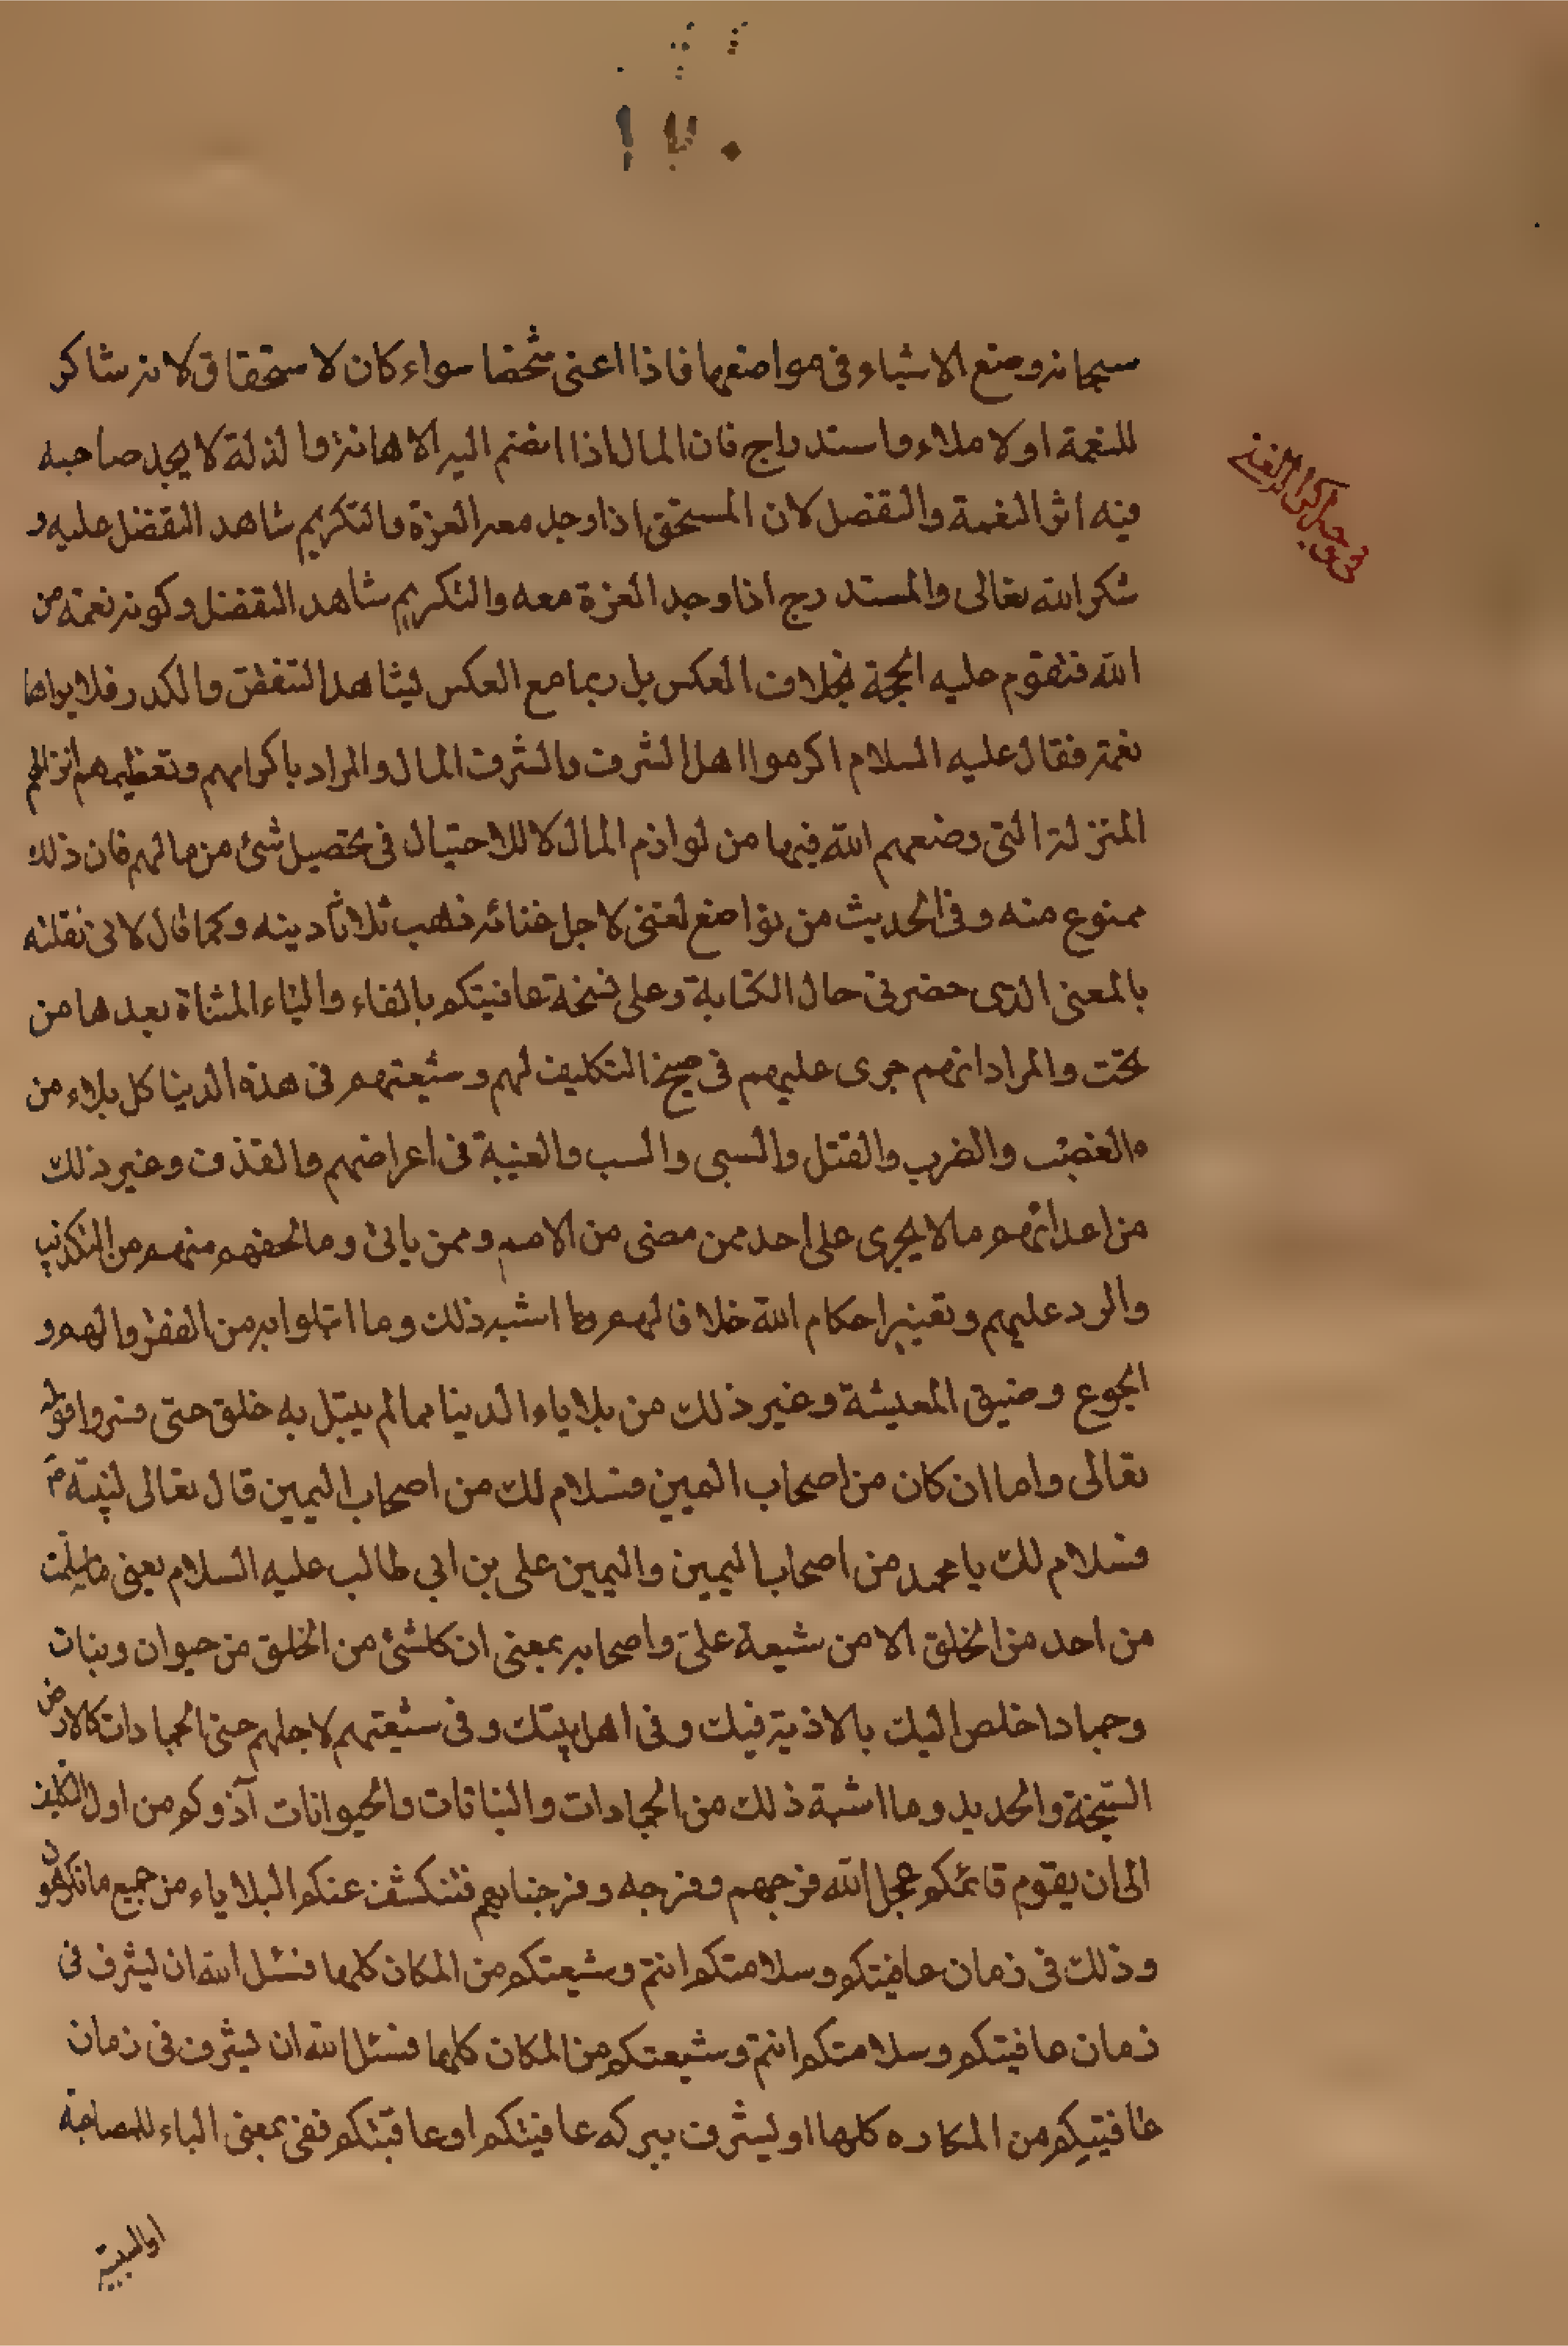 سبحانه وضع الاشياء فى مواضعها فاذا اغنى شخصا سواء كان لاستحقاق لانه شاكر
للنعمة او لاملاء واستدراج فان المال اذا انضم اليه الاهانة والذلة لا يجد صاحبه
فيه اثر النعمة والتفضل لان المستحق اذا وجد معه العزة والتكريم شاهد التفضل عليه و
شكر الله تعالى والمستدرج اذا وجد العزة معه والتكريم شاهد التفضل وكونه نعمة من
الله فتقوم عليه الحجة بخلاف العكس بل ربما مع العكس ليشاهد والكدر فلا يراها
نعمة فقال عليه السلام اكرموا اهل الشرف والشرف المال والمراد باكرامهم وتعظيمهم
المنزلة التى وضعهم الله فيها من لوازم المال لا للاحتيال فى تحصيل شئ من مالهم فان ذلك
ممنوع منه وفى الحديث من تواضع لغنى لاجل غنائه ذهب ثلاثا دينه وكما قال لانى نقلته
بالمعنى الذى حضرنى حال الكتابة وعلى نسخة عافيتكم بالفاء والياء المثناة بعدها من
تحت والمراد انهم جرى عليهم فى التكليف لهم وشيعتهم فى هذة الدنيا كل بلاء من
والغصب والضرب والقتل والسبى والسب والغيبة فى اعراضهم والقذف وغير ذلك
من اعدائهم ما لا يجرى على احد ممن مضى من الامم وممن ياتى وما لحقهم منهم من التكذيب
والرد عليهم وتغيير احكام الله خلافا لهم وما اشبه ذلك وما ابتلوا به من الفقر والهم و
الجوع وضيق المعيشة وغير ذلك من بلاياء الدنيا مما لم يبتل به خلق حتى فسروا قوله
تعالى واما ان كان من اصحاب اليمين فسلام لك من اصحاب اليمين قال تعالى لنبيه ص
فسلام لك يا محمد من اصحاب اليمين واليمين على بن ابي طالب عليه السلام يعنى ما سلمت
من احد من الخلق الا من شيعة على واصحابه بمعنى ان كل شئ من الخلق من حيوان ونبات
وجماد اخلص اليك بالاذية فيك وفى اهل بيتك وفى شيعتهم لاجلهم حتى الجمادات كالارض
السبخة والحديد وما اشبه ذلك من الجمادات والنباتات والحيوانات آذوكم من اول التكليف
الى ان يقوم قائمكم عجل الله فرجهم وفرجه وفرجنا بهم فتنكشف عنكم البلاياء من جميع ما تكرهون
وذلك فى زمان عافيتكم وسلامتكم انتم وشيعتكم من المكان كلها فنسئل الله ان ليشرف فى
زمان عافيتكم وسلامتكم انتم وشيعتكم من المكان كلها فنسئل الله ان ليشرف فى زمان
عافيتكم من المكاره كلها او ليشرف ببركه عافيتكم او عاقبتكم ففى بمعنى الباء للمصاحبة
او السببية